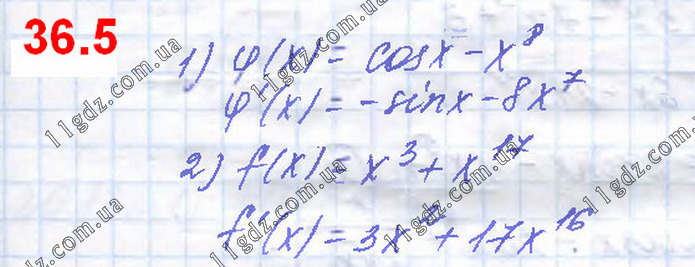 36.5
1) φ(x) = cosx - x⁸
φ'(x) = -sinx - 8x⁷
2) f(x) = x³ + x¹⁷
f'(x) = 3x² + 17x¹⁶
11gdz.com.ua
11gdz.com.ua
11gdz.com.ua
11gdz.com.ua
11gdz.com.ua
11gdz.com.ua